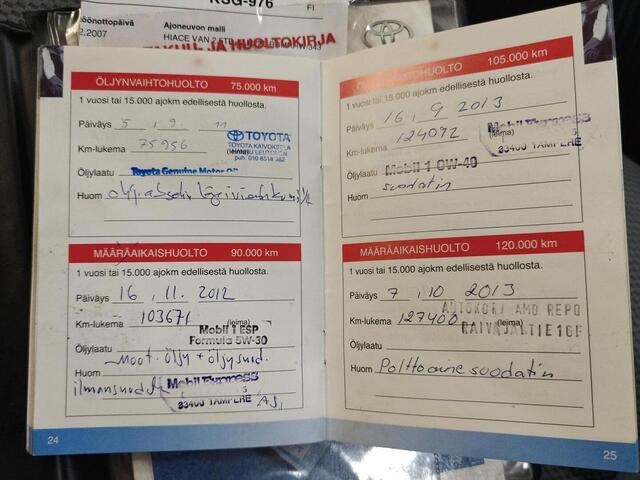 KSG-976
FI
Ajoneuvon malli
2.2007
HIACE VAN 2.5TD
JA HUOLTOKIRJA
TOYOTA
ÖLJYNVAIHTOHUOLTO 75.000 km
1 vuosi tai 15.000 ajokm edellisestä huollosta.
Päiväys 5 . 9 . 11
Km-lukema 75956
TOYOTA
TOYOTA KAIVOKSELA
(leima)
Öljylaatu Toyota Genuine Motor Oil
Huom
MÄÄRÄAIKAISHUOLTO 90.000 km
1 vuosi tai 15.000 ajokm edellisestä huollosta.
Päiväys 16 . 11. 2012
Km-lukema 103671 (leima)
Mobil 1 ESP
Formula 5W-30
Öljylaatu
Moot. öljy + öljysuod.
Huom
ilmansuod.
Mobil Express
33400 TAMPERE
24
105.000 km
1 vuosi tai 15.000 ajokm edellisestä huollosta.
Päiväys 16 . 9 2013
Km-lukema 124092 (leima)
Mobil Express
33400 TAMPERE
Öljylaatu Mobil 1 0W-40
Huom suodatin
MÄÄRÄAIKAISHUOLTO 120.000 km
1 vuosi tai 15.000 ajokm edellisestä huollosta.
Päiväys 7 . 10 2013
Km-lukema 127400 (leima)
AUTOKORJ AMO REPO
Öljylaatu
Huom Polttoainesuodatin
25